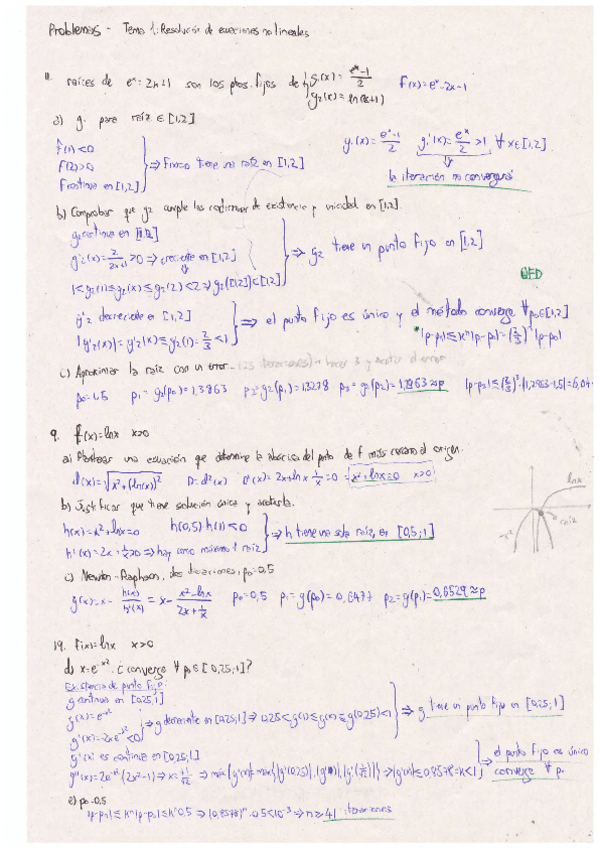 Problemas - Tema 1: Resolución de ecuaciones no lineales
11. raíces de e^x = 2x+1 son los ptos. fijos de { g₁(x) = (e^x-1)/2 f(x) = e^x-2x-1
g₂(x) = ln(2x+1)
a) g₁ para raíz ∈ [1,2]
f(1)<0
f(2)>0
f continua en [1,2] } ⇒ f(x)=0 tiene una raíz en [1,2]
g₁(x) = (e^x-1)/2 g₁'(x) = e^x/2 > 1 ∀x∈[1,2]
la iteración no convergerá
b) Comprobar que g₂ cumple las condiciones de existencia y unicidad en [1,2].
g₂ continua en [1,2]
g'₂(x) = 2/(2x+1) > 0 ⇒ creciente en [1,2]
1<g₂(1)≤g₂(x)≤g₂(2)<2 ⇒ g₂([1,2])⊂[1,2] } ⇒ g₂ tiene un punto fijo en [1,2]
g'₂ decreciente en [1,2]
|g'₂(x)| = g'₂(x) ≤ g'₂(1) = 2/3 < 1 } ⇒ el punto fijo es único y el método converge ∀p₀∈[1,2]
c) Aproximar la raíz con un error
p₀=1,5 p₁=g₂(p₀)=1,3863 p₂=g₂(p₁)=1,3278 p₃=g₂(p₂)=1,2963≈p
9. f(x)=lnx x>0
a) Plantear una ecuación que determine la abscisa del punto de f más cercano al origen.
d(x)=√(x²+(lnx)²) D=d²(x) D'(x)=2x+2lnx 1/x=0 x²+lnx=0 x>0
b) Justificar que tiene solución única y acotarla.
h(x)=x²+lnx=0 h(0,5)h(1)<0
h'(x)=2x+1/x>0 ⇒ hay como máximo 1 raíz } ⇒ h tiene una sola raíz, en [0,5;1]
lnx
-x²
raíz
c) Newton-Raphson, dos iteraciones, p₀=0,5
g(x)=x- h(x)/h'(x) = x- (x²-lnx)/(2x+1/x) p₀=0,5 p₁=g(p₀)=0,6477 p₂=g(p₁)=0,6529≈p
19. f(x)=lnx x>0
d) x=e^-x². ¿converge ∀p₀∈[0,25;1]?
Existencia de punto fijo:
g continua en [0,25;1]
g(x)=e^-x²
g'(x)=-2xe^-x²<0 } ⇒ g decreciente en [0,25;1] ⇒ 0,25<g(1)≤g(x)≤g(0,25)<1 } ⇒ g tiene un punto fijo en [0,25;1]
g'(x) es continua en [0,25;1]
el punto fijo es único
converge ∀p₀
e) p₀=0,5
|p-pₙ|≤kⁿ|p-p₀|≤kⁿ0,5 ⇒ (0,8578)ⁿ·0,5<10^-3 ⇒ n≥41 iteraciones